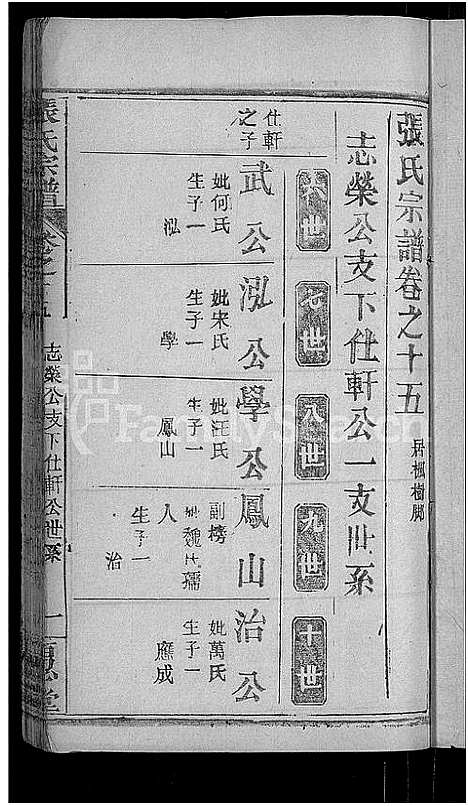 張氏宗譜卷之十五 居楓樹脚
志榮公支下仕軒公一支世系
六世
七世
八世
九世
十世
仕軒之子
武公
妣何氏
生子一
泓
泓公
妣宋氏
生子一
學
學公
妣汪氏
生子一
鳳山
鳳山
副榜
妣魏氏孺人
生子一
治
治公
妣萬氏
生子一
應成
張氏宗譜
卷之十五
志榮公支下仕軒公世系
一
堂
FamilySearch